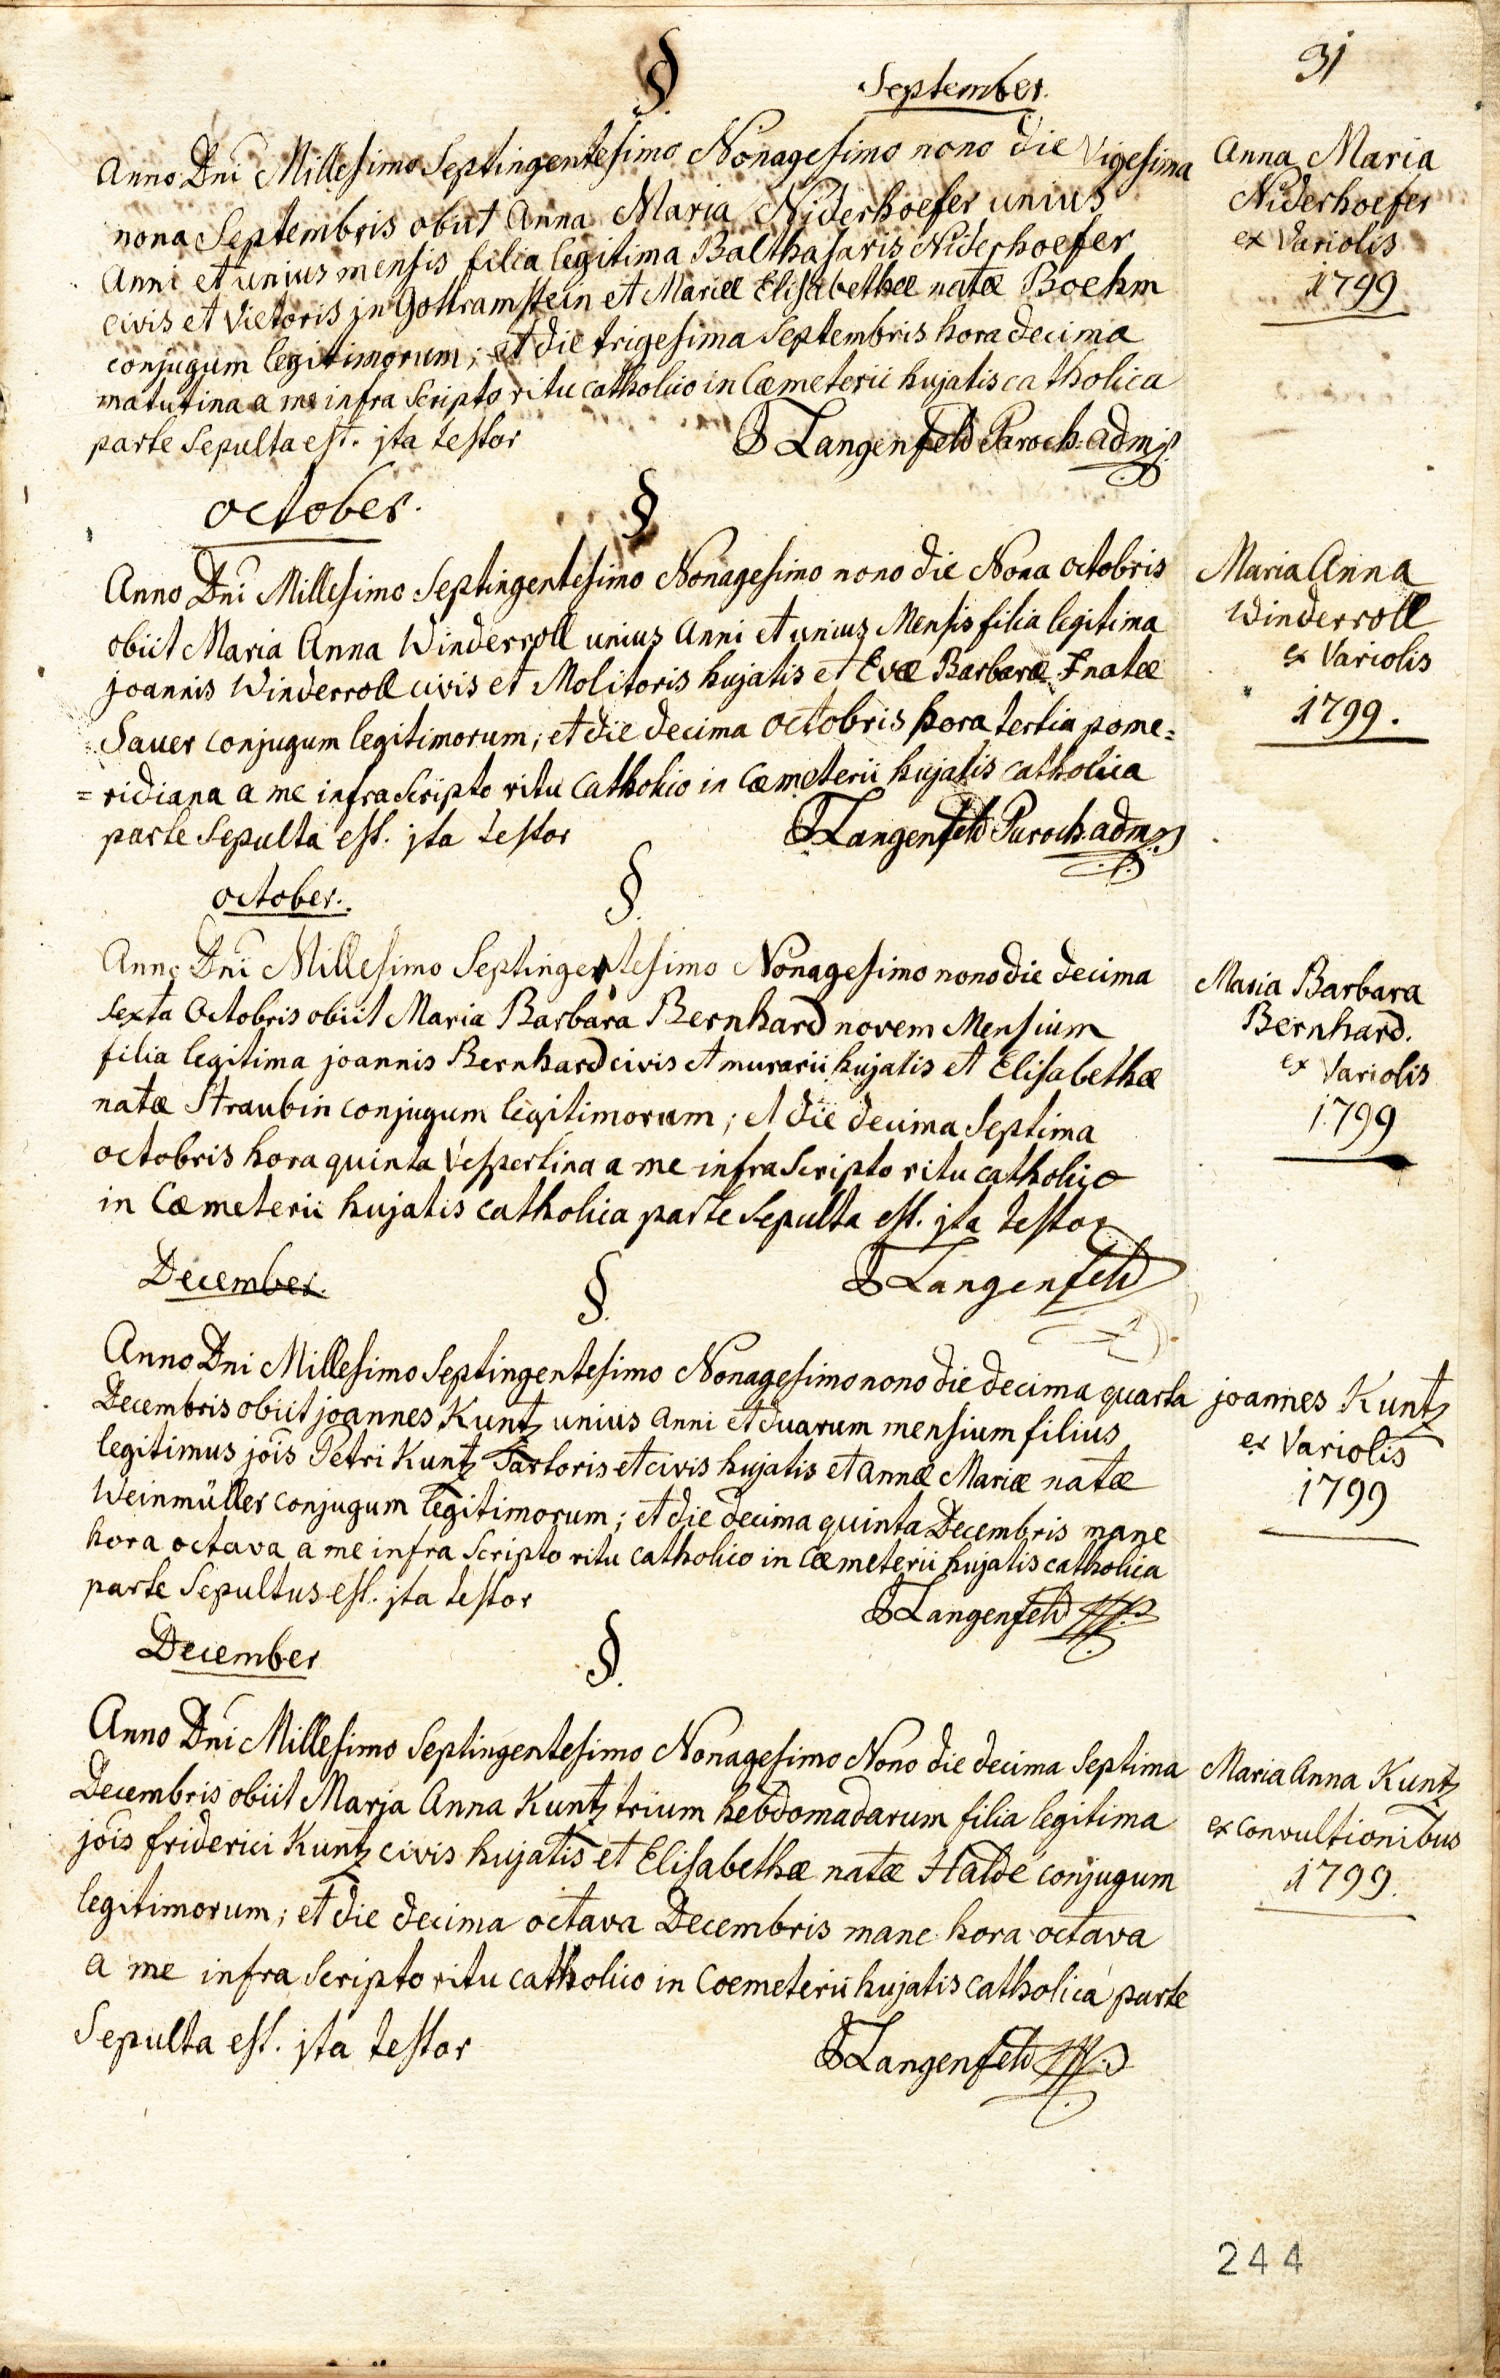 31
§
September.
Anno Dni Millesimo Septingentesimo Nonagesimo nono die Vigesima
nona Septembris obiit Anna Maria Niderhoefer unius
Anni et unius mensis filia legitima Balthasaris Niderhoefer
civis et Vietoris in Gottramstein et Mariæ Elisabethæ natæ Boehm
conjugum legitimorum; et die trigesima Septembris hora decima
matutina a me infra scripto ritu catholico in Cæmeterii hujatis catholica
parte Sepulta est. jta testor
Langenfeld Paroch. adm
Anna Maria
Niderhoefer
ex Variolis
1799
october.
§
Anno Dni Millesimo Septingentesimo Nonagesimo nono die Nona octobris
obiit Maria Anna Winderroll unius Anni et unius Mensis filia legitima
joannis Winderroll civis et Molitoris hujatis et Evæ Barbaræ natæ
Sauer conjugum legitimorum; et die decima octobris hora tertia pome=
=ridiana a me infra scripto ritu catholico in Cæmeterii hujatis catholica
parte Sepulta est. jta testor
Langenfeld Paroch. adm
Maria Anna
Winderroll
ex Variolis
1799.
october.
§.
Anno Dni Millesimo Septingentesimo Nonagesimo nono die decima
sexta Octobris obiit Maria Barbara Bernhard novem Mensium
filia legitima joannis Bernhard civis et murarii hujatis et Elisabethæ
natæ Straubin conjugum legitimorum; et die decima Septima
octobris hora quinta Vespertina a me infra scripto ritu catholico
in Cæmeterii hujatis catholica parte Sepulta est. jta testor
Langenfeld
Maria Barbara
Bernhard.
ex Variolis
1799
December.
§.
Anno Dni Millesimo Septingentesimo Nonagesimo nono die decima quarta
Decembris obiit joannes Kuntz unius Anni et duarum mensium filius
legitimus jois Petri Kuntz Sartoris et civis hujatis et Annæ Mariæ natæ
Weinmüller conjugum legitimorum; et die decima quinta Decembris mane
hora octava a me infra scripto ritu catholico in Cæmeterii hujatis catholica
parte Sepultus est. jta testor
Langenfeld
joannes Kuntz
ex Variolis
1799
December
§.
Anno Dni Millesimo Septingentesimo Nonagesimo Nono die decima Septima
Decembris obiit Maria Anna Kuntz trium hebdomadarum filia legitima
jois friderici Kuntz civis hujatis et Elisabethæ natæ Halde conjugum
legitimorum; et die decima octava Decembris mane hora octava
a me infra scripto ritu catholico in Coemeterii hujatis catholica parte
Sepulta est. jta testor
Langenfeld
Maria Anna Kuntz
ex Convultionibus
1799.
244